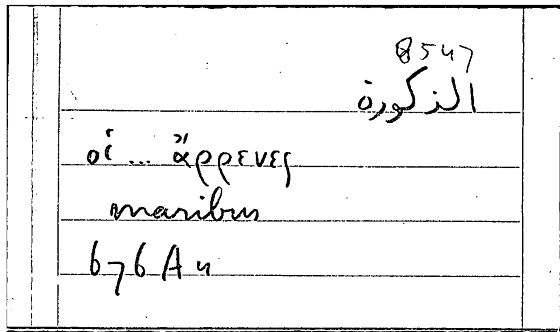 8547
الذكورة
οἱ ... ἄρρενες
maribus
676 A 4